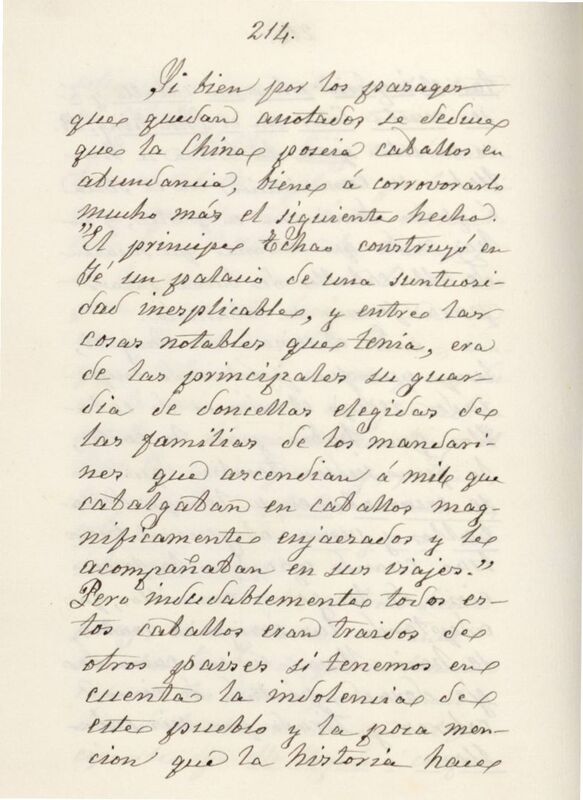 214.
Si bien por los pasages
que quedan anotados se deduce
que la China poseia caballos en
abundancia, biene á corrovorarlo
mucho más el siguiente hecho.
"El principe Tchao construyó en
Fé un palacio de una suntuosi-
dad inesplicable, y entre las
cosas notables que tenía, era
de las principales su guar-
dia de doncellas elegidas de
las familias de los mandari-
nes que ascendian á mil que
cabalgaban en caballos mag-
nificamente enjaezados y le
acompañaban en sus viajes."
Pero indudablemente todos es-
tos caballos eran traidos de
otros paises si tenemos en
cuenta la indolencia de
este pueblo y la poca men-
cion que la historia hace